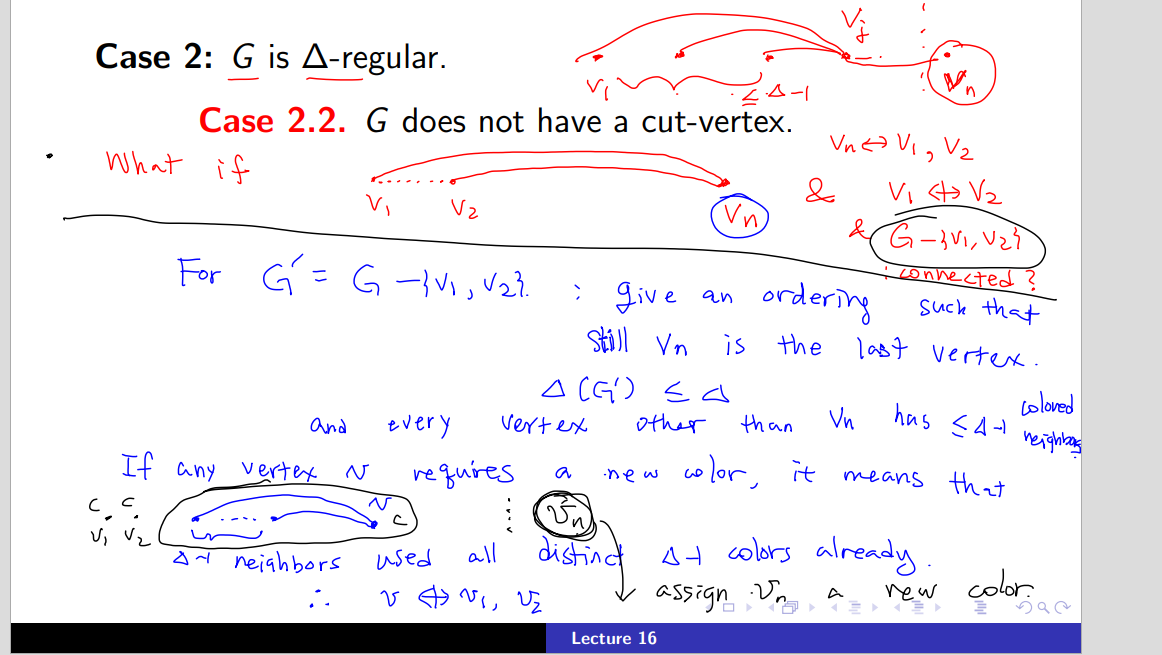 Case 2: G is Δ-regular.
v₁ ≤ Δ-1 vⱼ vₙ
Case 2.2. G does not have a cut-vertex.
vₙ ↔ v₁, v₂
What if
v₁ v₂ vₙ & v₁ ↮ v₂
& G-{v₁, v₂}
connected?
For G' = G-{v₁, v₂}. : give an ordering such that
still vₙ is the last vertex.
Δ(G') ≤ Δ
and every vertex other than vₙ has ≤ Δ-1 colored neighbors
If any vertex v requires a new color, it means that
c c v c vₙ
v₁ v₂
Δ-1 neighbors used all distinct Δ-1 colors already.
∴ v ↮ v₁, v₂ → assign vₙ a new color.
Lecture 16